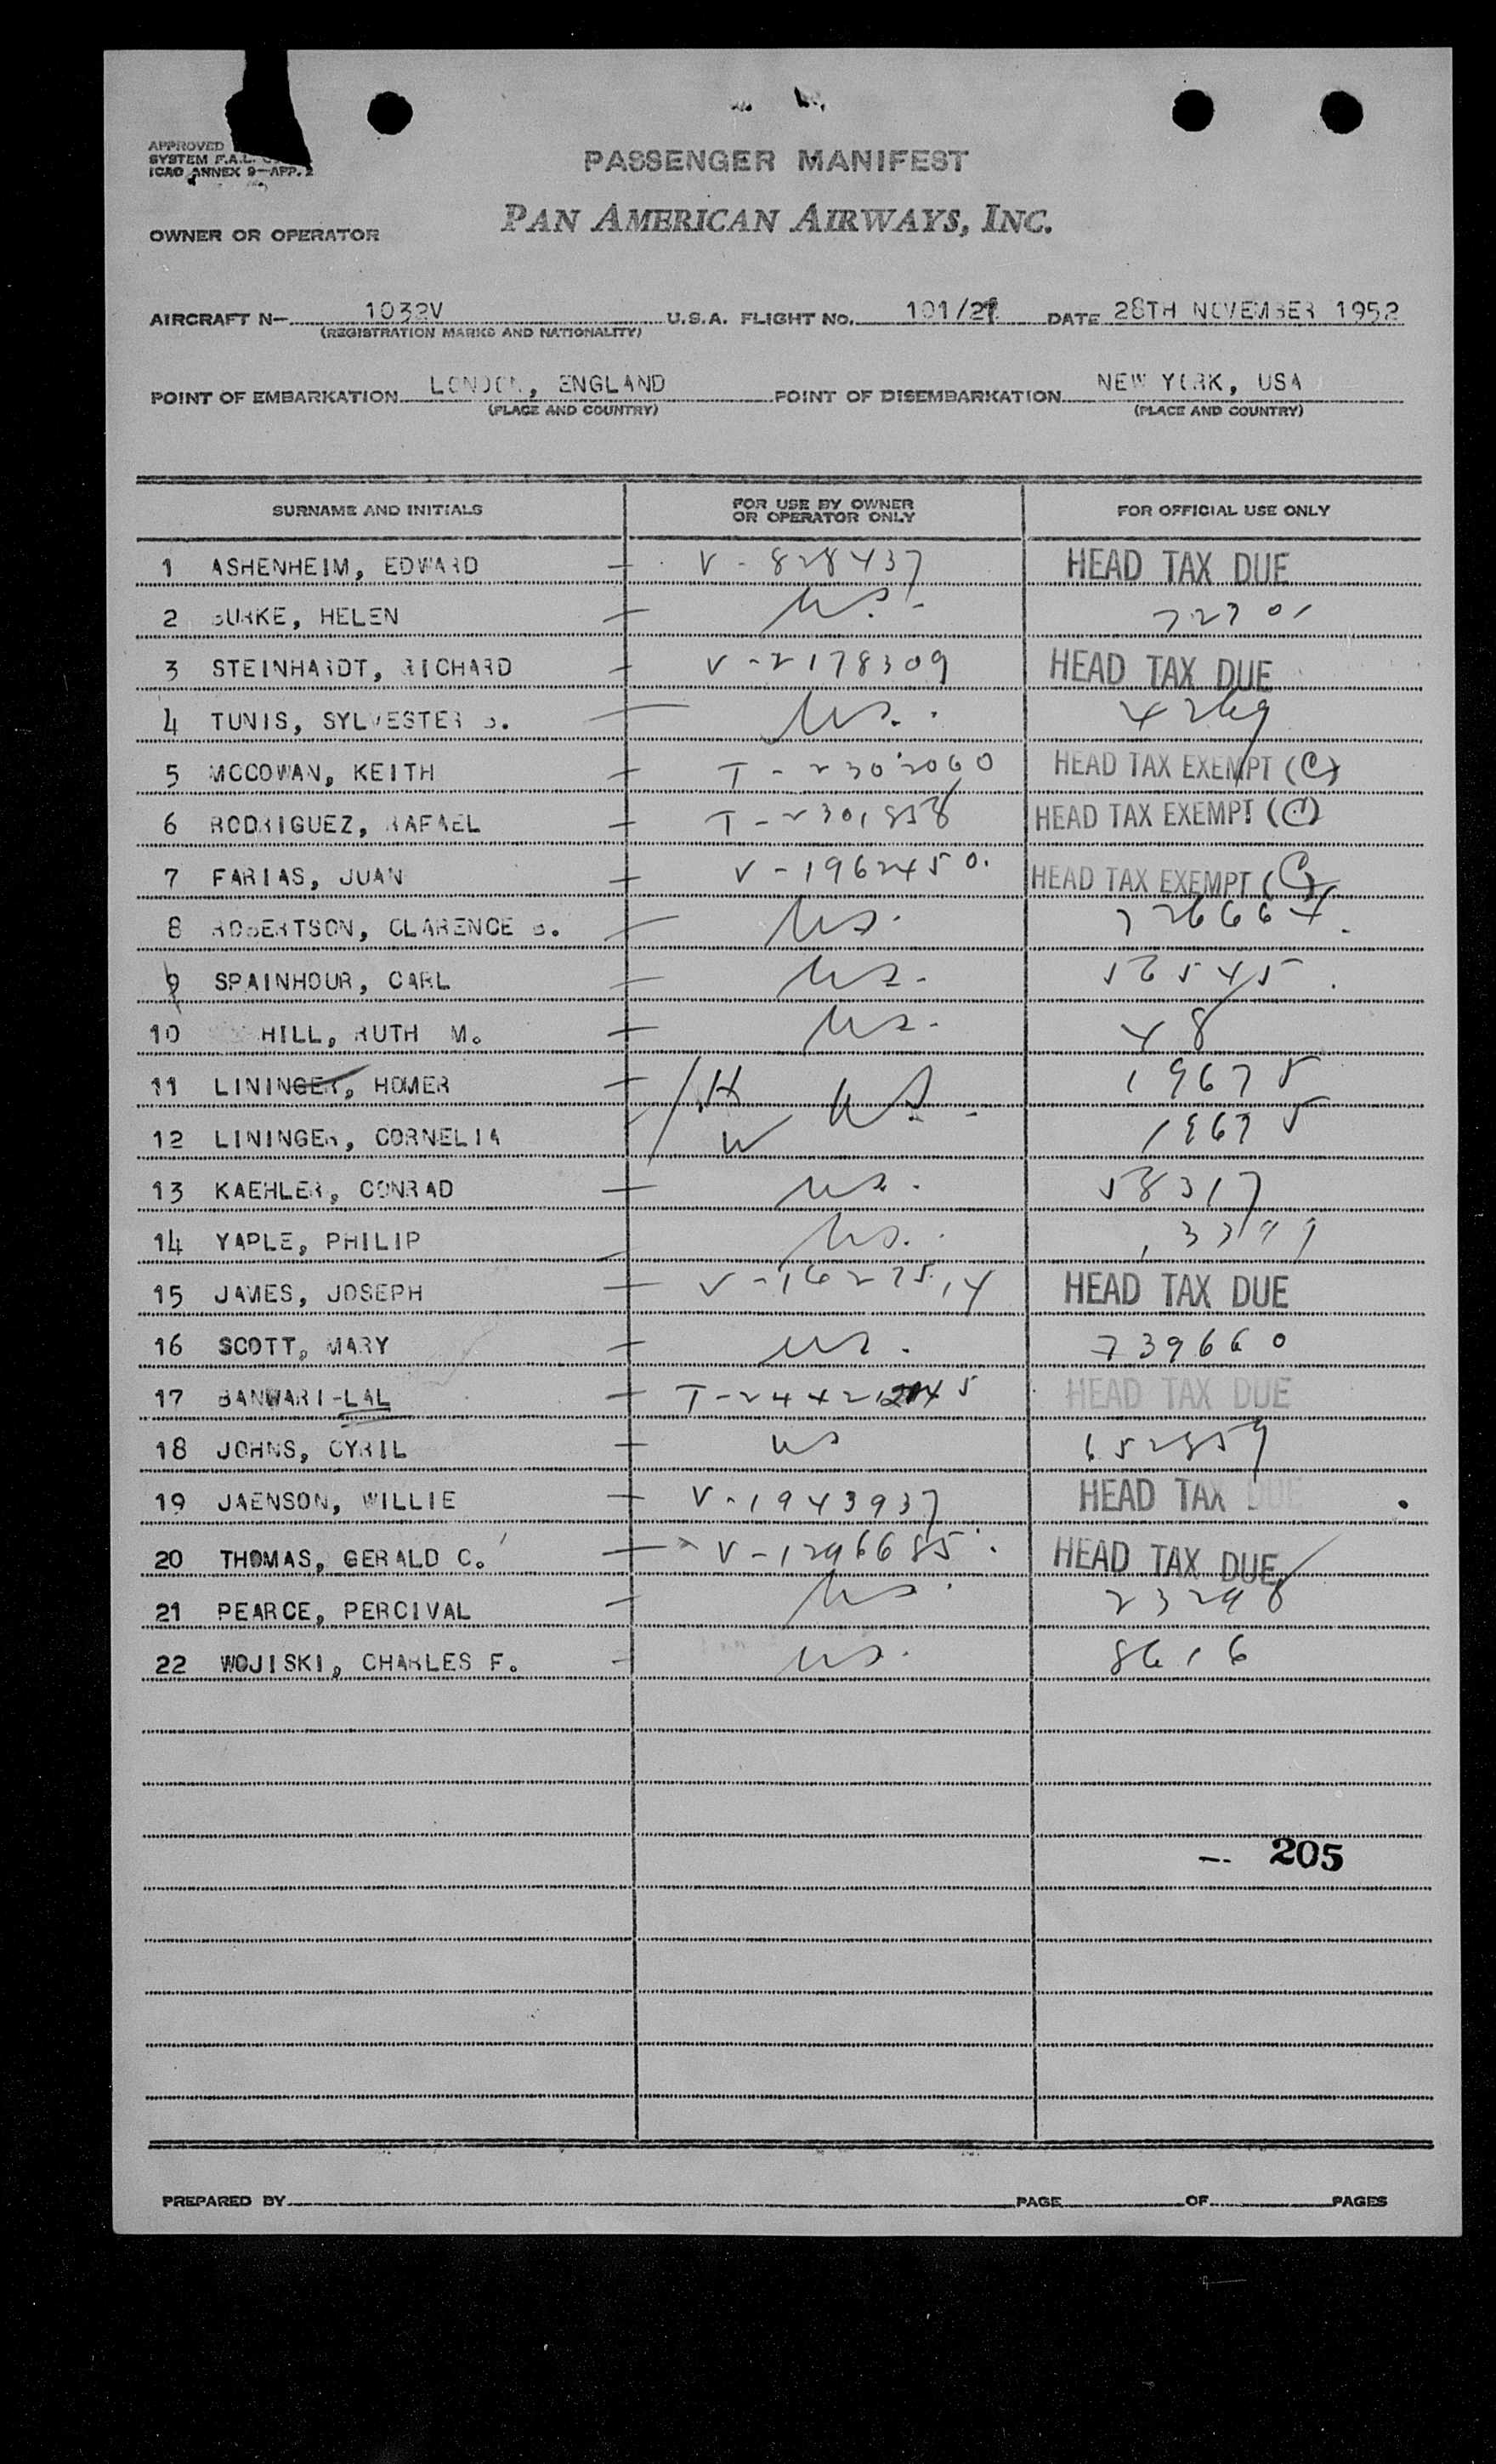 APPROVED
SYSTEM F.A.L.
ICAO ANNEX 9—APP. 2
PASSENGER MANIFEST
OWNER OR OPERATOR PAN AMERICAN AIRWAYS, INC.
AIRCRAFT N— 1032V U.S.A. FLIGHT No. 101/28 DATE 28TH NOVEMBER 1952
(REGISTRATION MARKS AND NATIONALITY)
POINT OF EMBARKATION LONDON, ENGLAND POINT OF DISEMBARKATION NEW YORK, USA
(PLACE AND COUNTRY) (PLACE AND COUNTRY)
SURNAME AND INITIALS FOR USE BY OWNER OR OPERATOR ONLY FOR OFFICIAL USE ONLY
1 ASHENHEIM, EDWARD — V-828437 HEAD TAX DUE
2 BURKE, HELEN — US.
3 STEINHARDT, RICHARD — V-2178309 HEAD TAX DUE
4 TUNIS, SYLVESTER B. — US. 4269
5 MCCOWAN, KEITH — T-2302060 HEAD TAX EXEMPT (C)
6 RODRIGUEZ, RAFAEL — T-2301858 HEAD TAX EXEMPT (C)
7 FARIAS, JUAN — V-1962450. HEAD TAX EXEMPT (C)
8 ROBERTSON, CLARENCE B. — US. 726664.
9 SPAINHOUR, CARL — US. 56545
10 HILL, RUTH M. — US. 48
11 LININGER, HOMER — H US. 19675
12 LININGER, CORNELIA W 19675
13 KAEHLER, CONRAD — US. 58317
14 YAPLE, PHILIP — US.
15 JAMES, JOSEPH — V-1627514 HEAD TAX DUE
16 SCOTT, MARY — US. 739660
17 BANWARI-LAL — HEAD TAX DUE
18 JOHNS, CYRIL — US 652859
19 JAENSON, WILLIE — V-1943937 HEAD TAX DUE
20 THOMAS, GERALD C. — V-1296685. HEAD TAX DUE
21 PEARCE, PERCIVAL — US. 23298
22 WOJISKI, CHARLES F. — US. 8616
-- 205
PREPARED BY PAGE OF PAGES